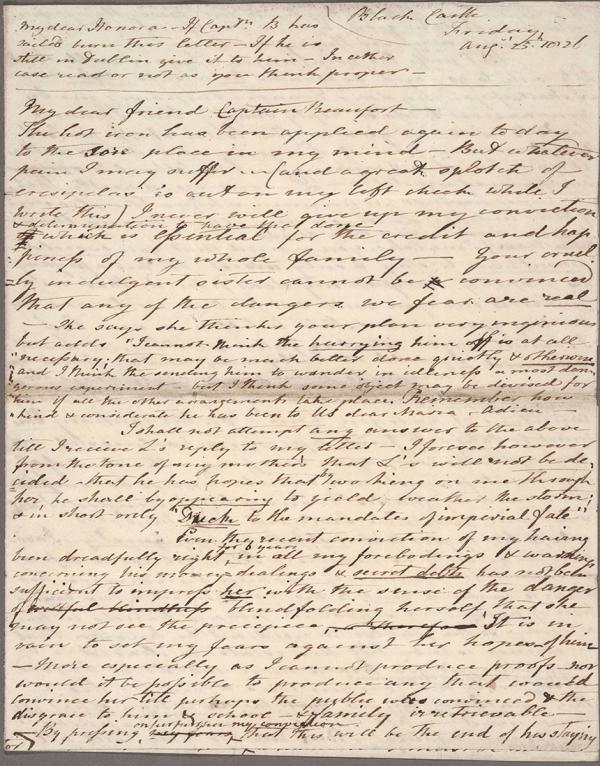 My dear Honora - If Captn. B has
sailed burn this letter - If he is
still in Dublin give it to him - In either
case read or not as you think proper -
Black Castle
Friday
Augt. 25th 1826
My dear friend Captain Beaufort -
The hot iron has been applied again today
to the sore place in my mind - But whatever
pain I may suffer - (and a great splotch of
erasipelas is out on my left cheek while I
write this) I never will give up my conviction
& determination to have that done
which is essential for the credit and hap
piness of my whole family - Your cruel
ly indulgent sister cannot be convinced
that any of the dangers we fear are real
- She says she thinks your plan very ingenious
but adds "I cannot think the hurrying him off is at all
"necessary; that may be much better done quietly & otherwise
"and I think the sending him to wander in idleness a most dan
gerous experiment - but I think some object may be devised for
him if all the other arrangements take place. Remember how
kind & considerate he has been to us dear Maria - Adieu -
I shall not attempt any answer to the above
till I receive L's reply to my letter - I foresee however
from the tone of my mother's that L's will not be de-
cided - that he has hopes that working on me through
her he shall by appearing to yield, weather the storm;
& in short only "Duck to the mandates of imperial fate"
Even the recent conviction of my having
been dreadfully right for 6 years in all my forebodings & warnings
concerning his money-dealings & secret debts has not been
sufficient to impress her with the sense of the danger
of blindfolding herself that she
may not see the precipice It is in
vain to set my fears against her hopes of him
- More especially as I cannot produce proofs - nor
would it be possible to produce any that would
convince her till perhaps the public were convinced & the
disgrace to him & school & family irretrievable -
By pressing my conviction that this will be the end of his staying